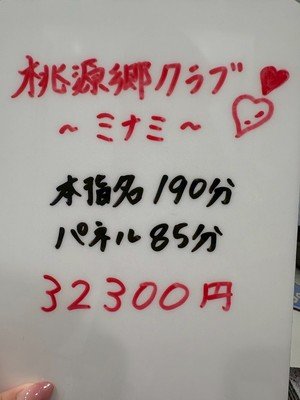 桃源郷クラブ
～ミナミ～
本指名190分
パネル85分
32300円